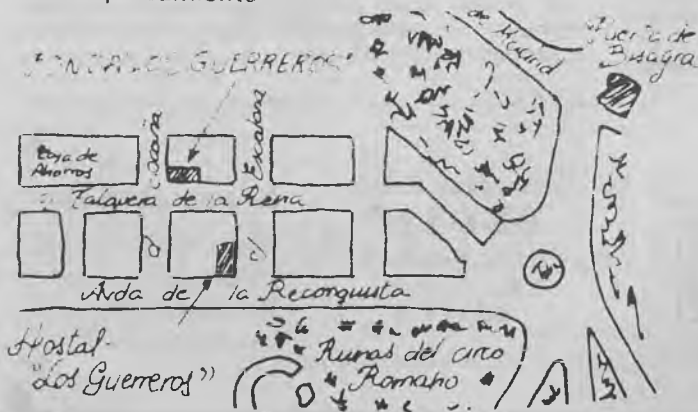 de Madrid
Puerta de
Bisagra
"FONDA LOS GUERREROS"
Caja de
Ahorros
Escalona
Talavera de la Reina
c/
c/
Avda de la Reconquista
Hostal
"Los Guerreros"
Ruinas del circo
Romano